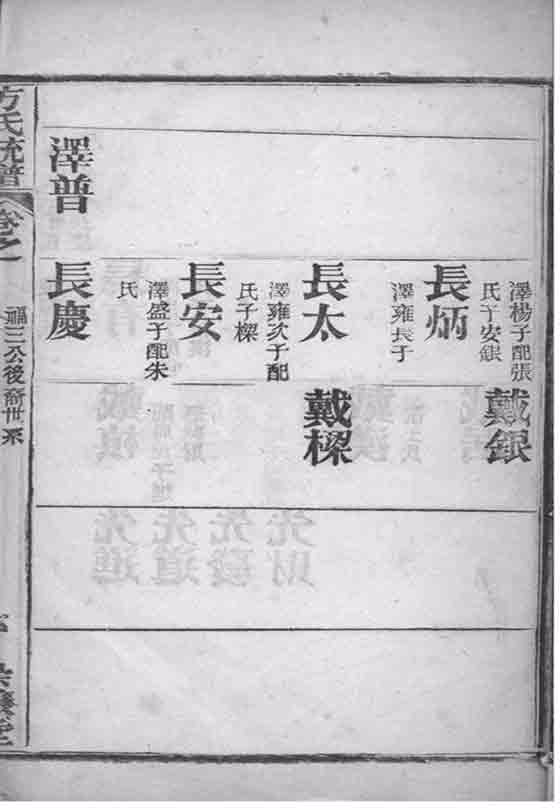 澤楊子配張
氏子安銀
戴銀
長炳
澤雍長子
長太
戴樑
澤雍次子配
氏子樑
長安
澤盛子配朱
氏
長慶
澤普
方氏統譜
卷之一
福三公後裔世系